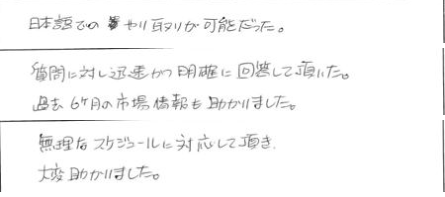 日本語での やり取りが可能だった。
質問に対し迅速かつ明確に回答して頂いた。
過去6ヶ月の市場情報も助かりました。
無理なスケジュールに対応して頂き、
大変助かりました。